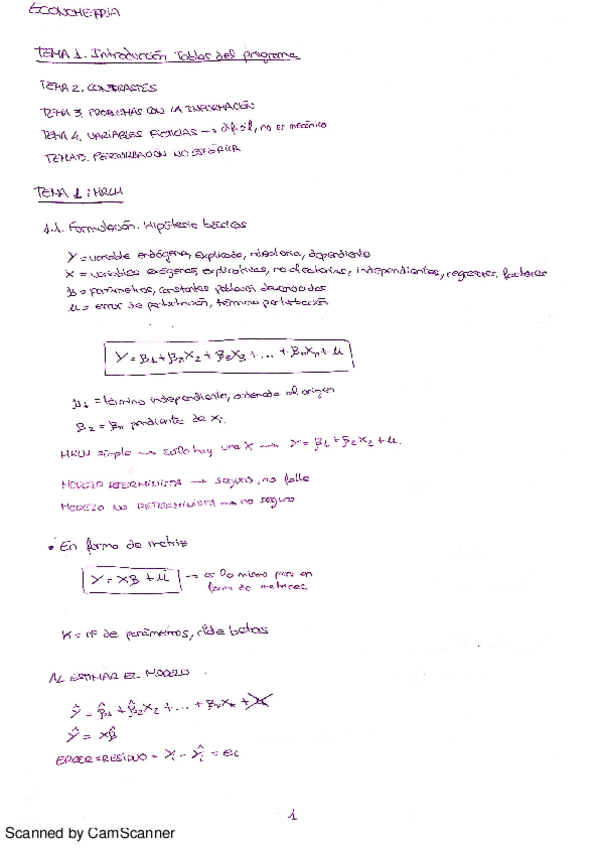 ECONOMETRÍA
TEMA 1. Introducción Tablas del programa
TEMA 2. CONTRASTES
TEMA 3. PROBLEMAS CON LA INFORMACIÓN
TEMA 4. VARIABLES FICTICIAS → difícil, no es mecánico
TEMA 5. PERTURBACIÓN NO ESFÉRICA
TEMA 1: MRLM
1.1. Formulación. Hipótesis básicas
Y = variable endógena, explicada, dependiente
X = variables exógenas, explicativas, independientes, regresores, factores
β = parámetros, constantes
u = error de perturbación, término perturbación
Y = β1 + β2X2 + β3X3 + ... + βnXn + u
β1 = término independiente, ordenada al origen
β2 = βn pendiente de xi.
MRLM simple → solo hay una X → Y = β1 + β2X2 + u.
MODELO DETERMINISTA → seguro, no falla
MODELO NO DETERMINISTA → no seguro
• En forma de matriz
Y = Xβ + u → es lo mismo pero en
forma de matrices
K = nº de parámetros, de betas
AL ESTIMAR EL MODELO
Ŷ = β̂1 + β̂2X2 + ... +
Ŷ = Xβ̂
ERROR = RESIDUO = Yi - Ŷi = ei
1
Scanned by CamScanner